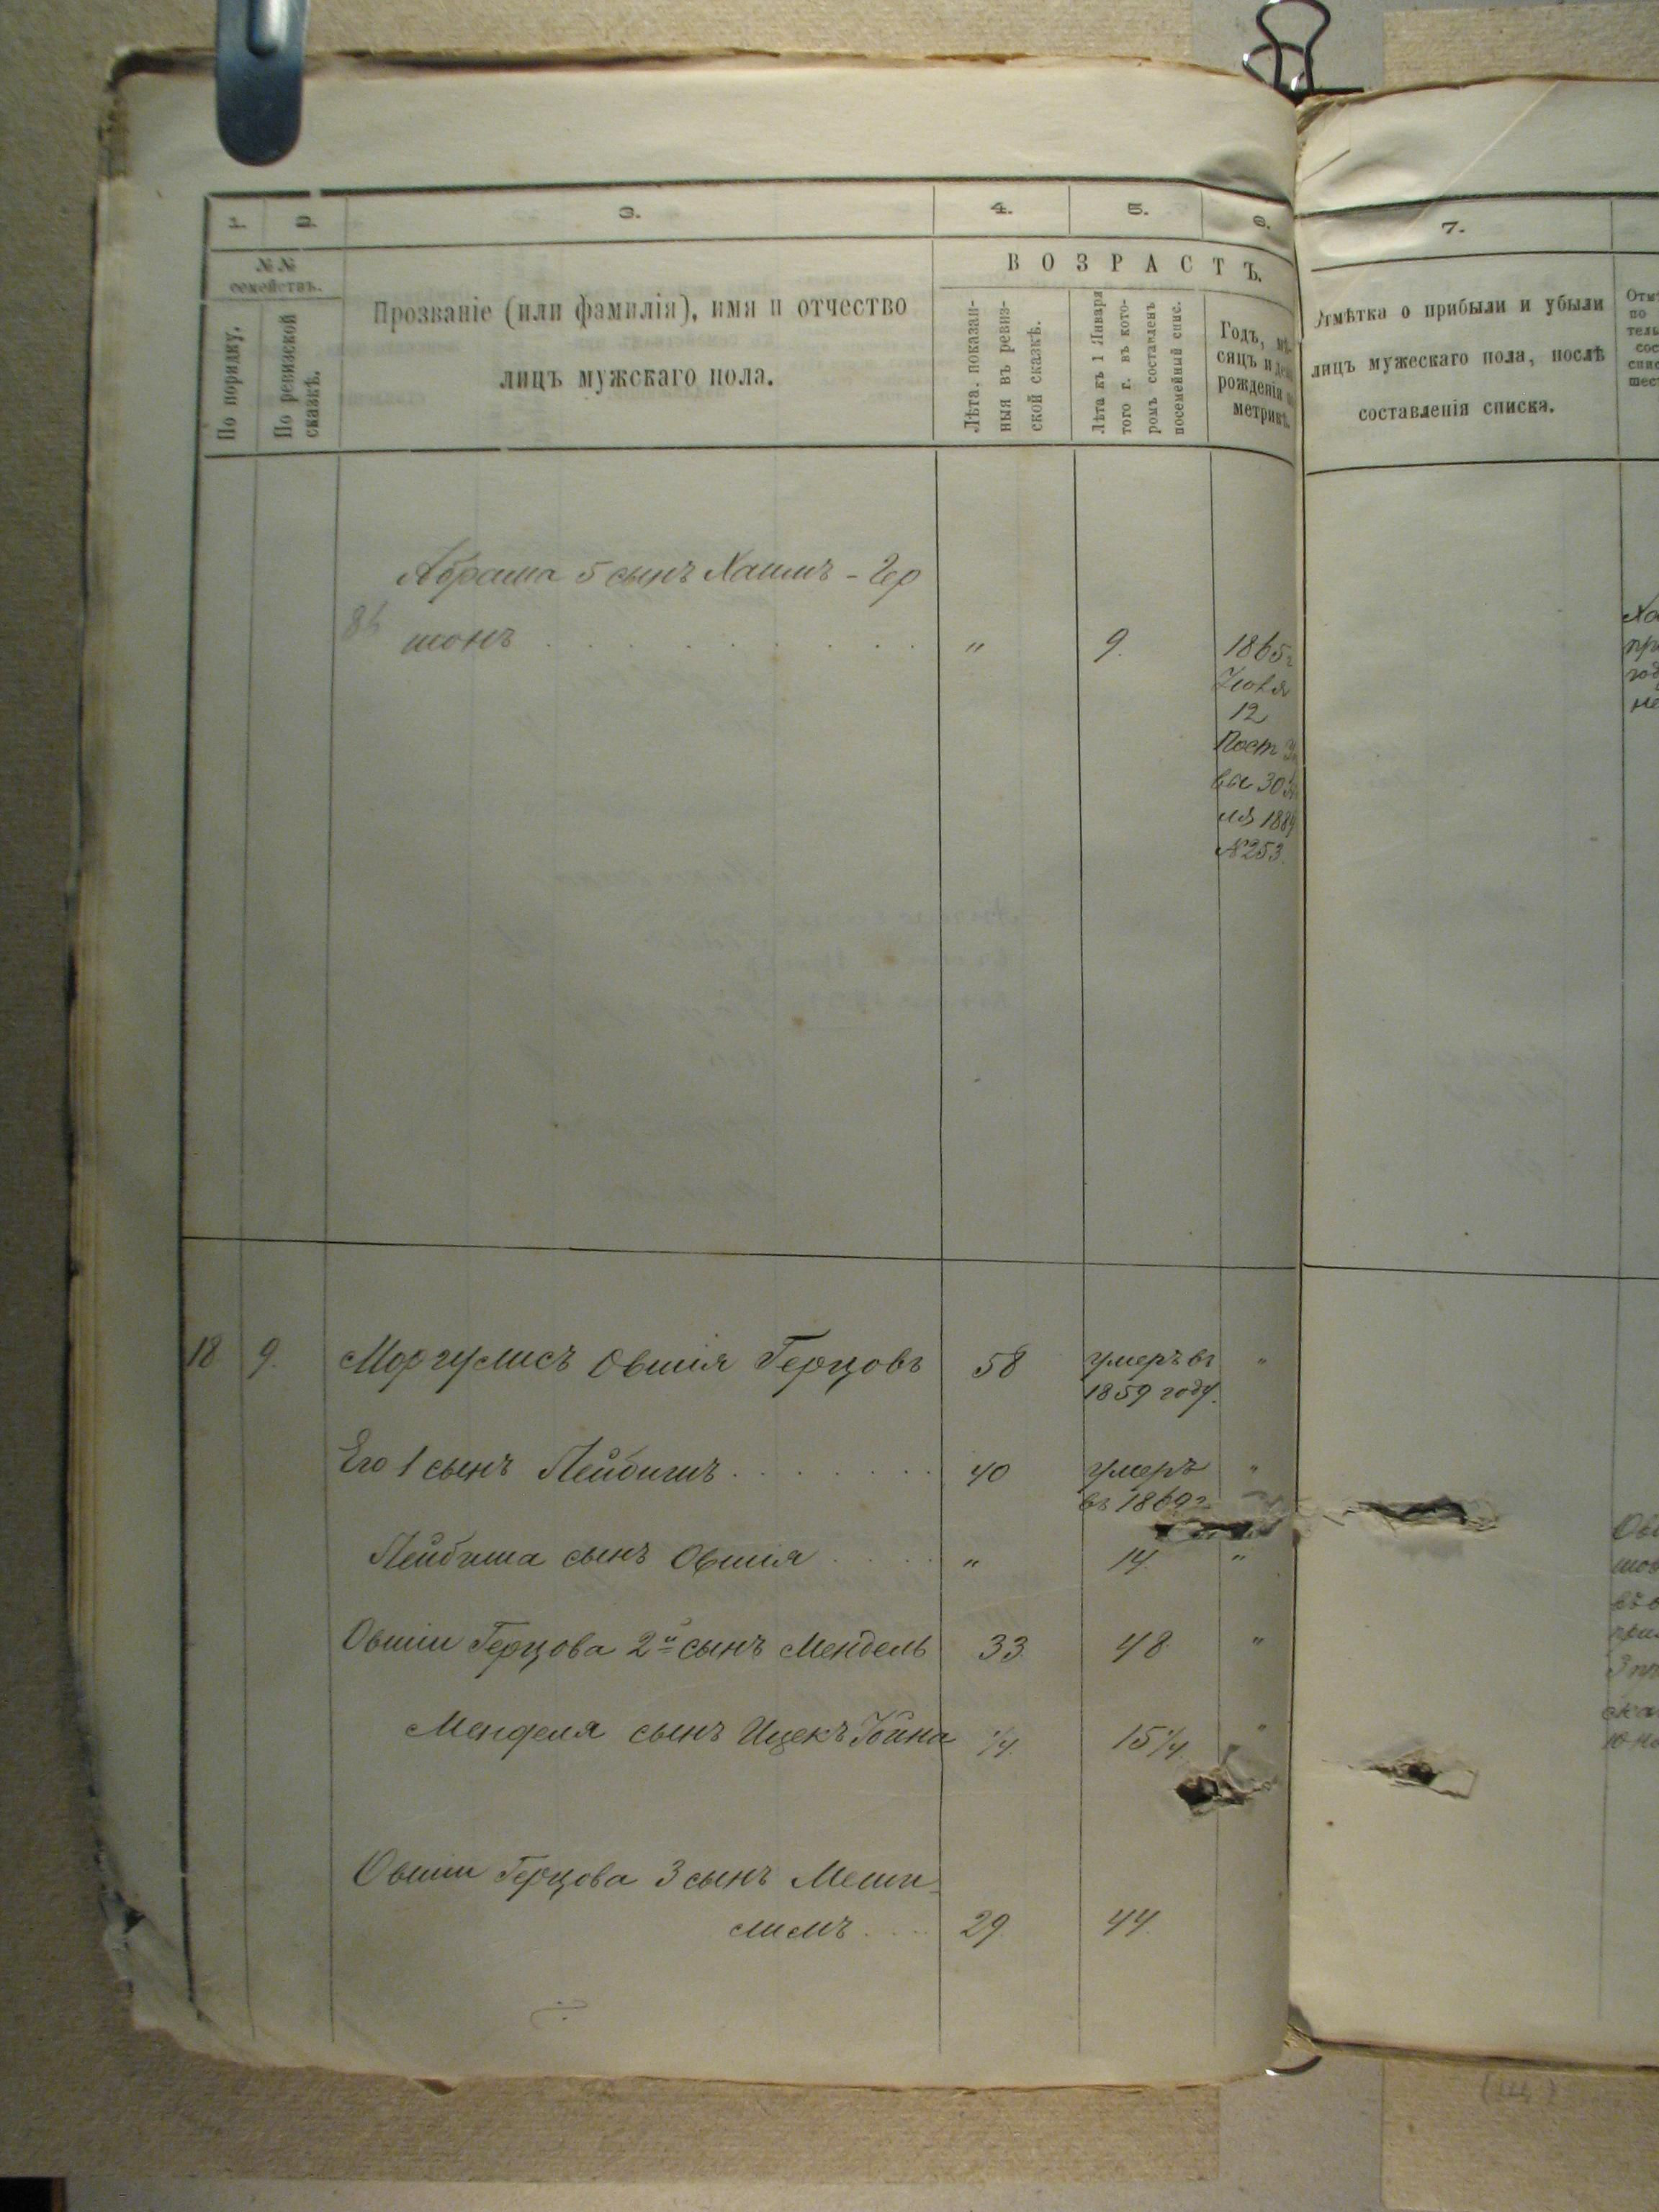 1. 2. 3. 4. 5. 6. 7.
№№ семействъ.
По порядку.
По ревизской сказкѣ.
Прозваніе (или фамилія), имя и отчество
лицъ мужскаго пола.
ВОЗРАСТЪ.
Лѣта, показан-
ныя въ ревиз-
ской сказкѣ.
Лѣта къ 1 Января
того г. въ кото-
ромъ составленъ
посемейный спис.
Годъ, мѣ-
сяцъ и день
рожденія по
метрикѣ.
Отмѣтка о прибыли и убыли
лицъ мужескаго пола, послѣ
составленія списка.
Абрама 5 сынъ Хаимъ-Гер
шонъ . . . . . . . . . " 9. 1865г
12
Пост
30
1889
№253.
18 9. Моргулисъ Овшія Герцовъ 58 умеръ въ "
1859 году.
Его 1 сынъ Лейбишъ . . . . . . . . 40 умеръ "
въ 1869г
Лейбиша сынъ Овшія . . . . . " 14. "
Овшіи Герцова 2й сынъ Мендель 33 48 "
Менделя сынъ Ицекъ Іойна 1/4. 15 1/4. "
Овшіи Герцова 3 сынъ Меши-
лимъ . . . . 29. 44.